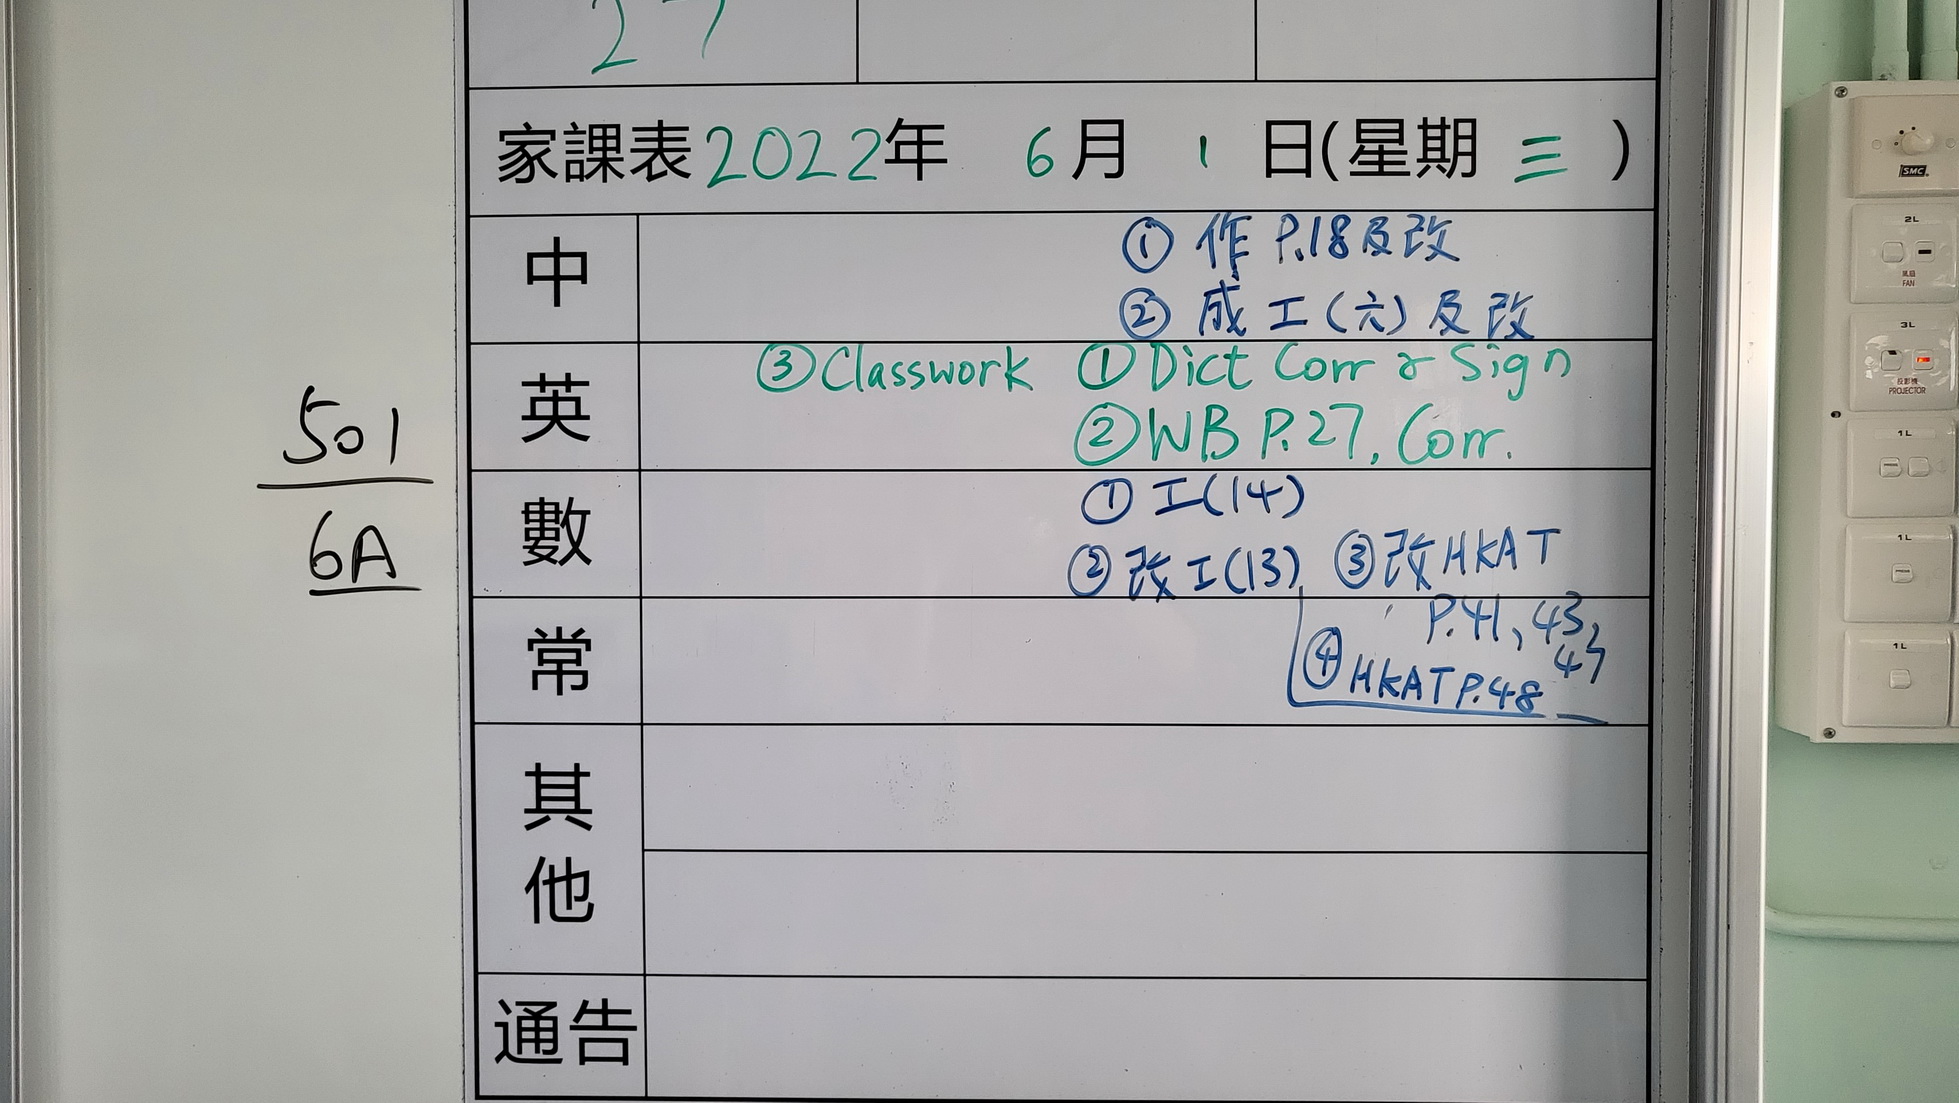 27
家課表2022年 6月 1 日(星期 三 )
中
① 作 P.18及改
② 成工(六)及改
英
③Classwork ①Dict Corr & Sign
②WB P.27, Corr.
數
① 工(14)
② 改工(13) ③改HKAT
P.41、43,
常
④HKAT P.48
其
他
通告
501
6A
SMC
2L
風扇
FAN
3L
投影機
PROJECTOR
1L
1L
1L